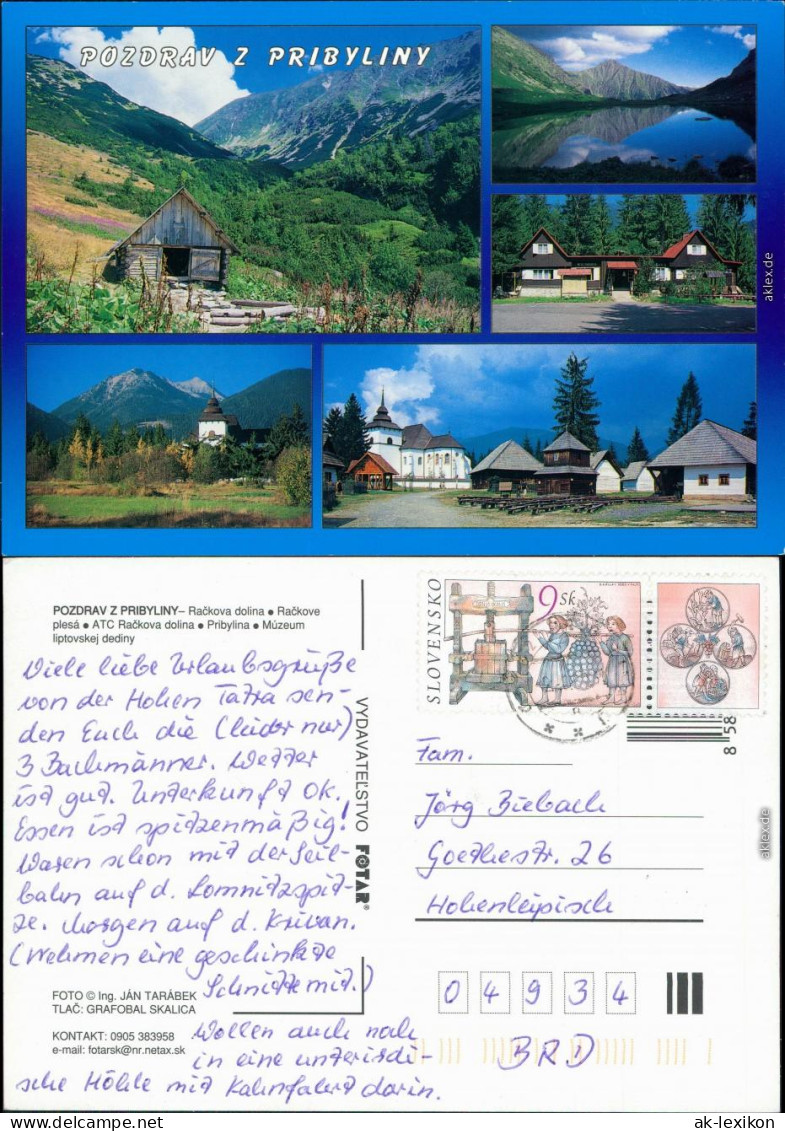 POZDRAV Z PRIBYLINY
aklex.de
POZDRAV Z PRIBYLINY – Račkova dolina ● Račkove
plesá ● ATC Račkova dolina ● Pribylina ● Múzeum
liptovskej dediny
Viele liebe Urlaubsgrüße
von der Hohen Tatra sen-
den Euch die (leider nur)
3 Bachmänner. Wetter
ist gut. Unterkunft Ok.,
Essen ist spitzenmäßig!
Waren schon mit der Seil-
bahn auf d. Lomnitzspit-
ze. Morgen auf d. Krivan.
(Nehmen eine geschinkte
Schnitte mit.)
Wollen auch noch
in eine unterirdi-
sche Höhle mit Kahnfahrt darin.
FOTO © Ing. JÁN TARÁBEK
TLAČ: GRAFOBAL SKALICA
KONTAKT: 0905 383958
e-mail: fotarsk@nr.netax.sk
VYDAVATEĽSTVO FOTAR®
SLOVENSKO
9 Sk
8 58
Fam.
Jörg Biebach
Goethestr. 26
Hohenleipisch
04934
BRD
aklex.de
ak-lexikon